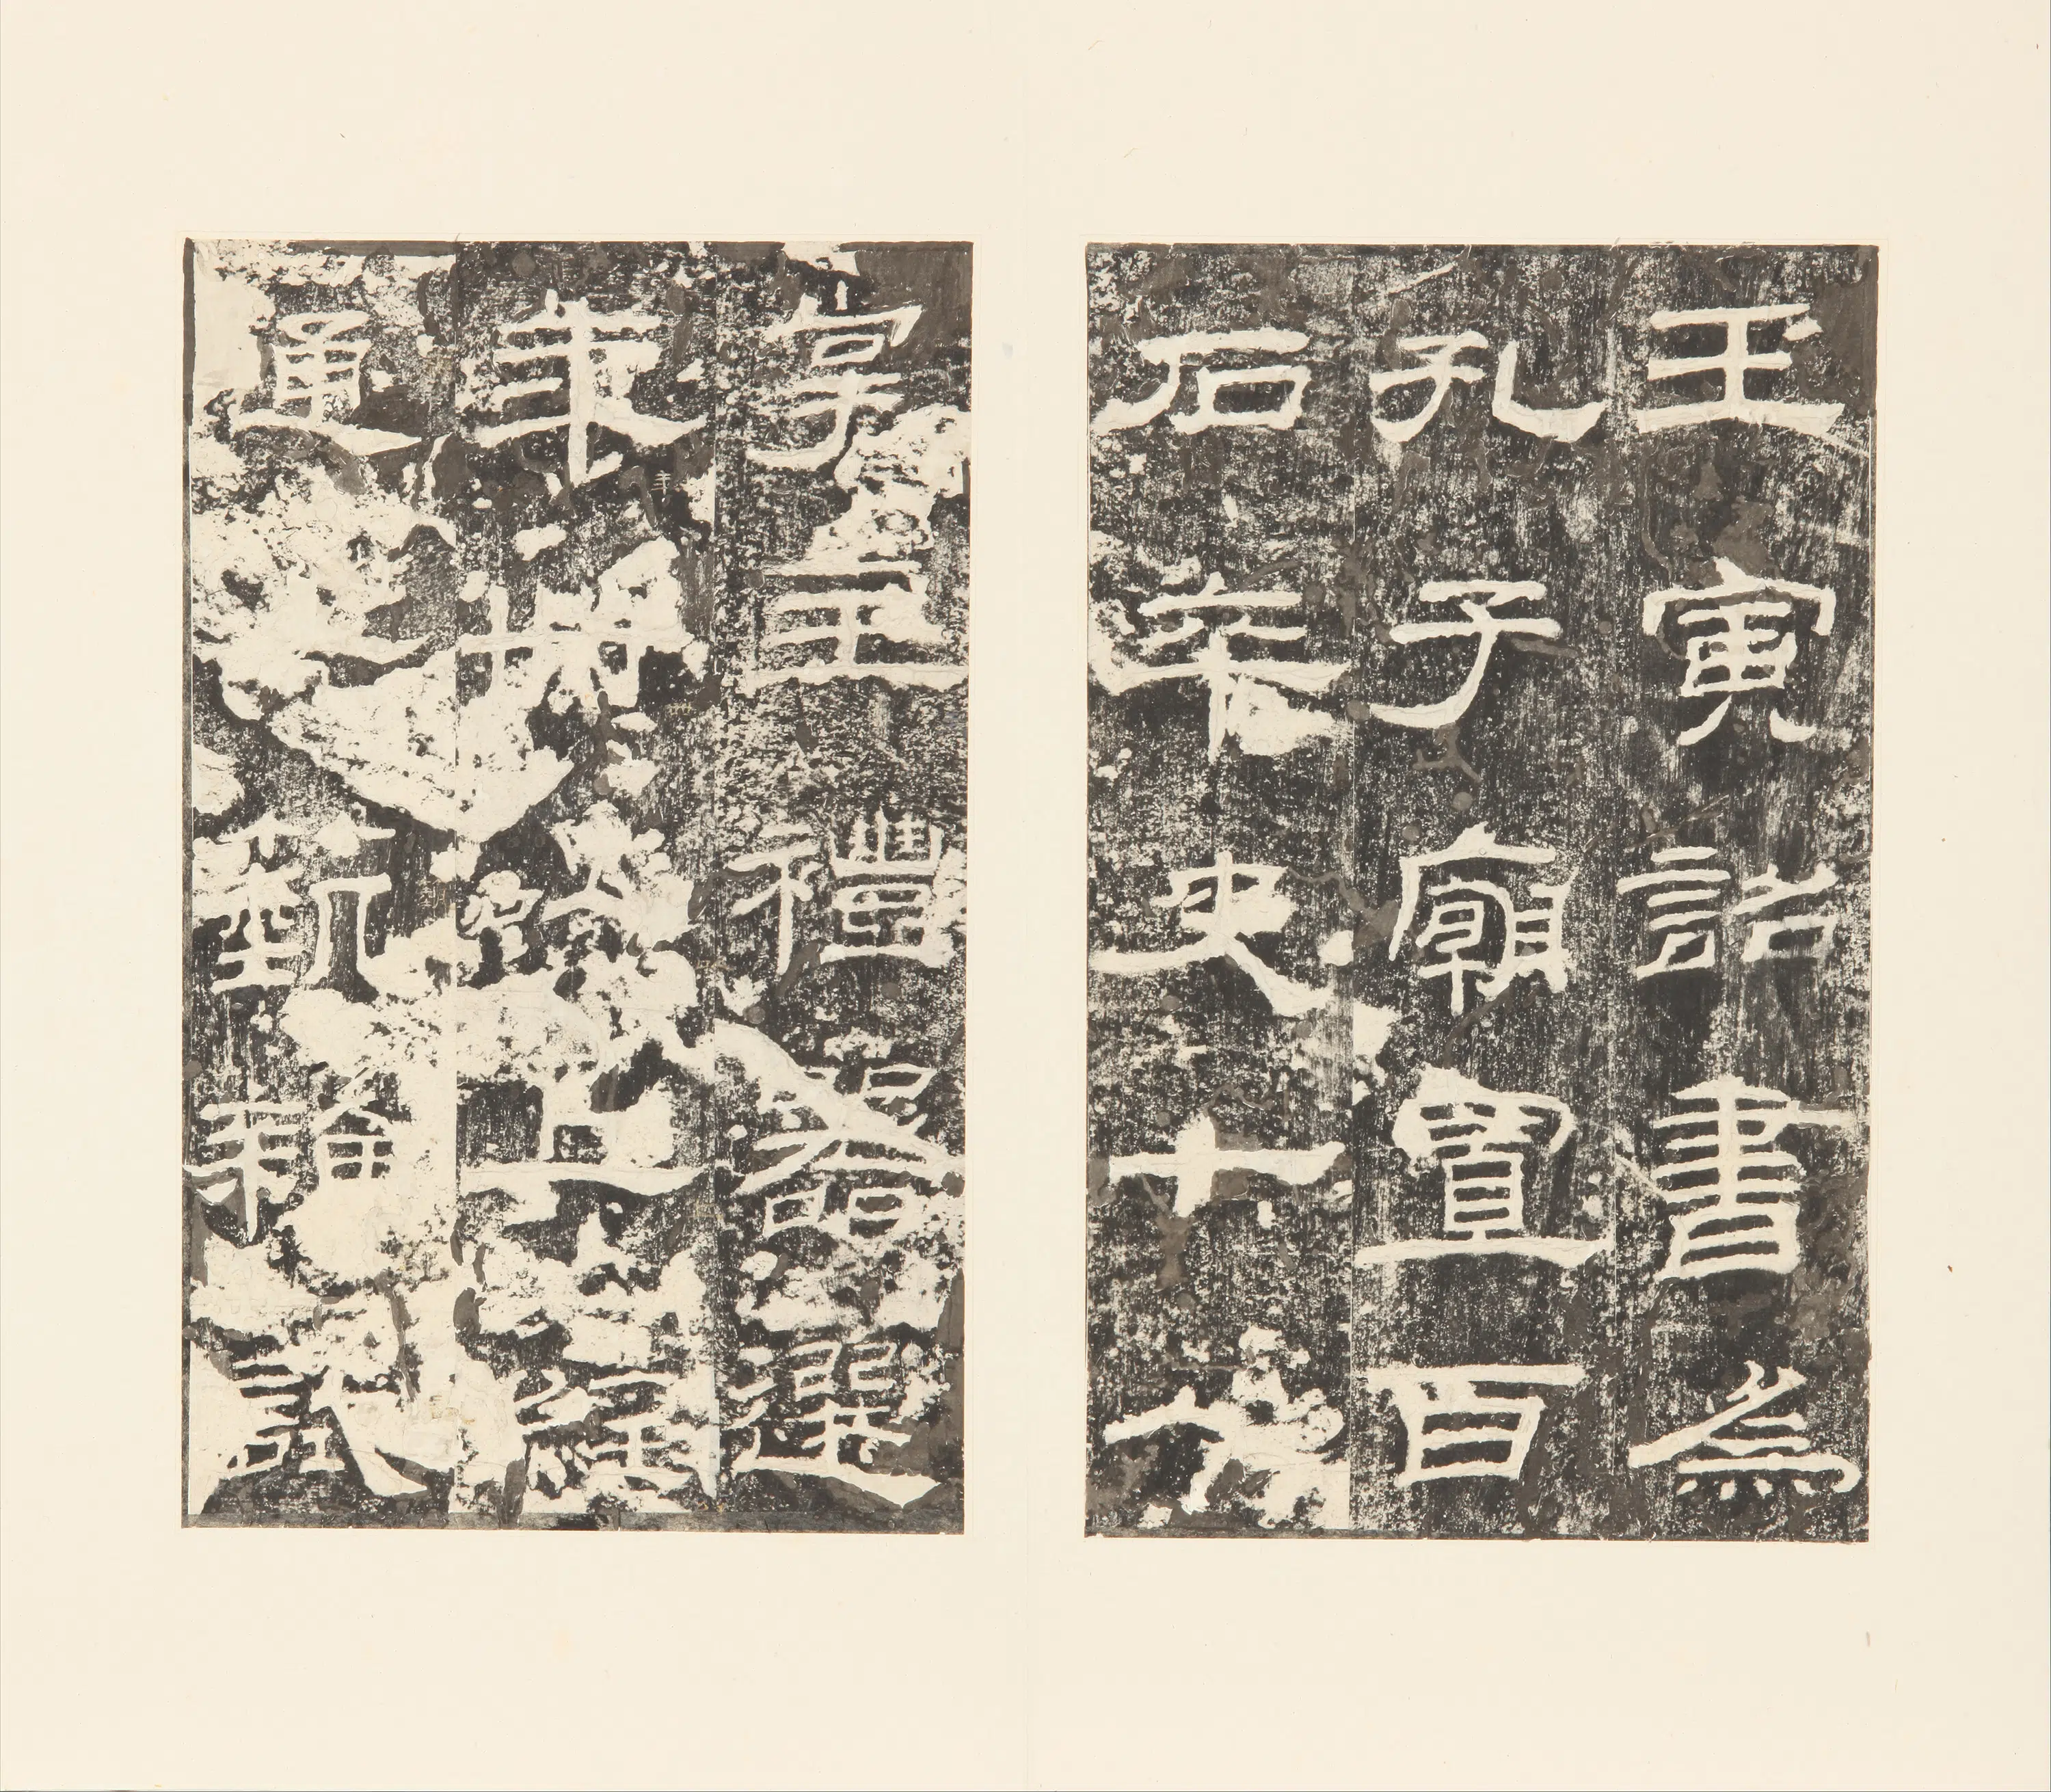 壬寅詔書為
孔子廟置百
石卒史一人
掌主禮器選
年卌以上經
通一藝雜試